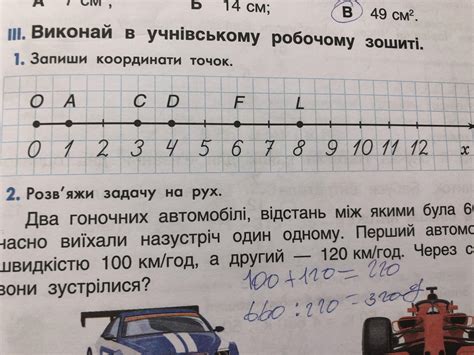 Б 14 см; В 49 см².
III. Виконай в учнівському робочому зошиті.
1. Запиши координати точок.
O A C D F L
0 1 2 3 4 5 6 7 8 9 10 11 12 x
2. Розв'яжи задачу на рух.
Два гоночних автомобілі, відстань між якими була
виїхали назустріч один одному. Перший
швидкістю 100 км/год, а другий — 120 км/год. Через
вони зустрілися?
100 + 120 = 220
660 : 220 =